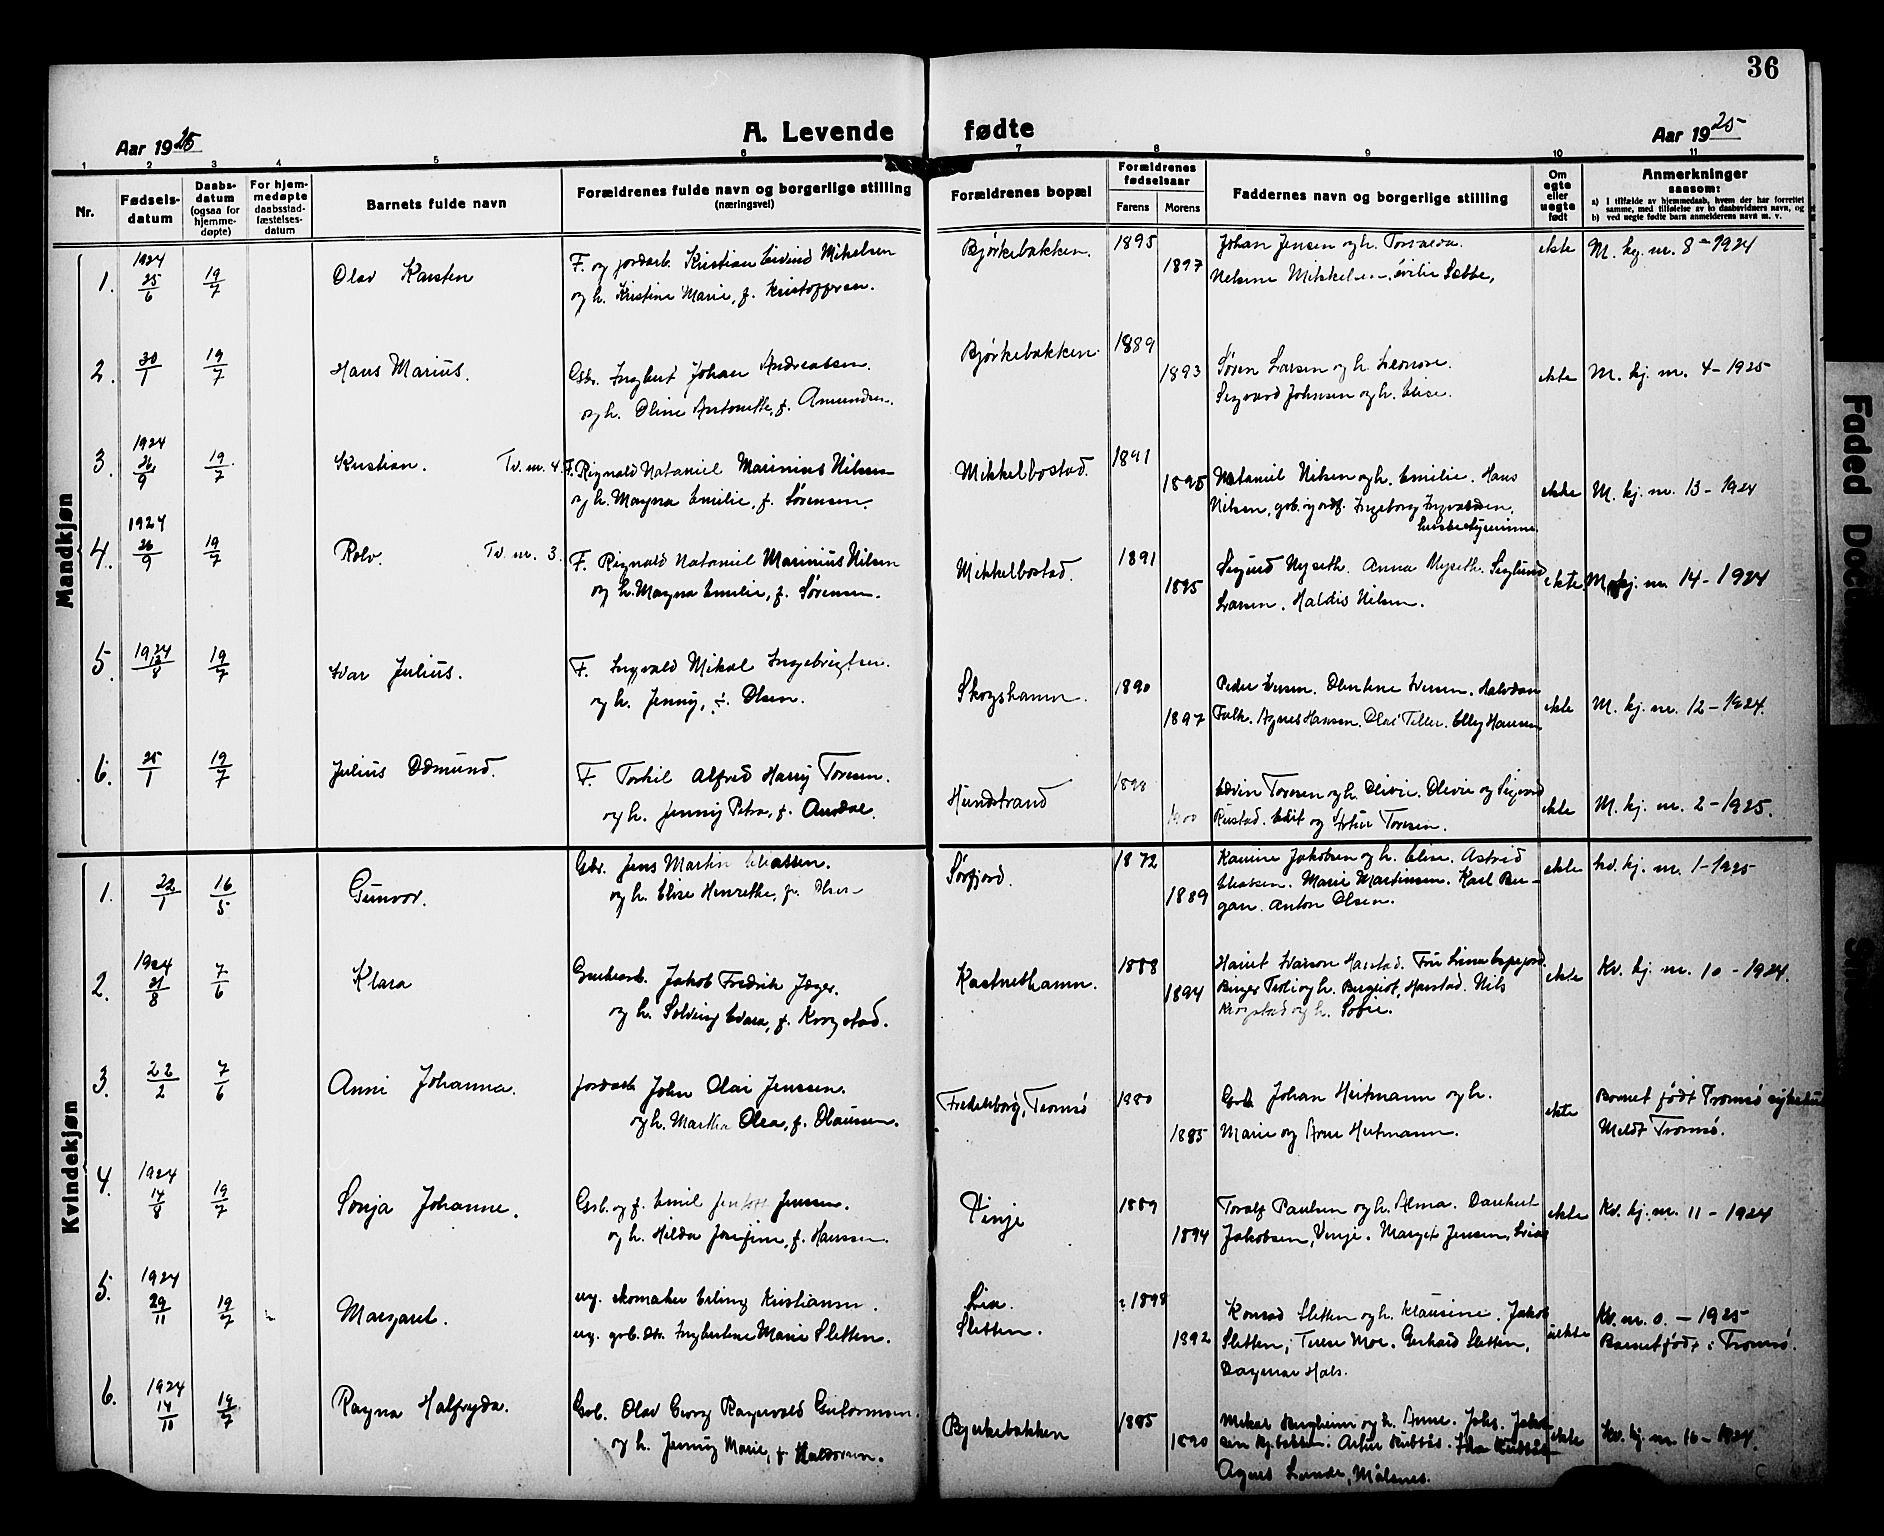 36
Aar 1925
A. Levende fødte
Aar 1925
1 2 3 4 5 6 7 8 9 10 11
Nr.
Fødsels-
datum
Daabs-
datum
(ogsaa for
hjemme-
døpte)
For hjem-
medøpte
daabsstad-
fæstelses-
datum
Barnets fulde navn
Forældrenes fulde navn og borgerlige stilling
(næringsvei)
Forældrenes bopæl
Forældrenes
fødselsaar
Farens
Morens
Faddernes navn og borgerlige stilling
Om
egte
eller
uegte
født
Anmerkninger
saasom:
a) I tilfælde av hjemmedaab, hvem der har forrettet
samme, med tilføielse av to daabsvidners navn, og
b) ved uegte fødte barn anmelderens navn m. v.
Mandkjøn
1. 1924 25/6 19/7 Olav Karsten
F. og jordarb. Kristian Eivind Mikelsen
og h. Kristine Marie, f. Kristoffersen.
Bjørkebakken. 1895 1897
Johan Jensen og h. Torvalda.
Nelsine Mikkelsen,
ekte M. kj. nr. 8 - 1924
2. 30/1 19/7 Hans Marius.
Gbr. Ingbert Johan Andreassen.
og h. Oline Antonette, f. Amundsen.
Bjørkebakken. 1889 1893
Søren Larsen og h. Leonore.
Sigvard Johnsen og h. Elise.
ekte M. kj. nr. 4 - 1925
3. 1924 26/9 19/7 Kristian. Tv. nr. 4.
F. Rignald Nataniel Marinius Nilsen
og h. Magna Emilie, f. Sørensen.
Mikkelbostad. 1891 1895
Nataniel Nilsen og h. Emilie. Hans
Nilsen, Ingeborg Ingvaldsen,
ekte M. kj. nr. 13 - 1924
4. 1924 26/9 19/7 Rolv. Tv. nr. 3.
F. Rignald Nataniel Marinius Nilsen
og h. Magna Emilie, f. Sørensen.
Mikkelbostad. 1891 1895
Sigurd Nyseth. Anna Nyseth. Siglund
Larsen. Haldis Nilsen.
ekte. M. kj. nr. 14 - 1924
5. 1924 12/8 19/7 Ivar Julius.
F. Ingvald Mikal Ingebrigtsen.
og h. Jenny, f. Olsen.
Skogshamn. 1890 1897
Peder Iversen. Iversen. Halvdan
Falk. Agnes Hansen. Teller. Elly Hansen
ekte M. kj. nr. 12 - 1924.
6. 25/1 19/7 Julius Odmund.
F. Torkil Alfred Harry Toresen.
og h. Jenny Petra, f.
Hundstrand 1898 1900
Edvin Toresen og h. Olivie. Olivie og Sigvard
Rustad. Edit og Artur Toresen.
ekte M. kj. nr. 2 - 1925.
Kvindekjøn
1. 22/1 16/5 Gunvor.
Gbr. Jens Martin Eliassen.
og h. Elise Henrette, f. Olsen
Sørfjord. 1872 1889
Jakobsen og h. Elise. Astrid
Eliassen. Marie Martinsen. Karl Ber-
gan. Anton Olsen.
ekte Kv. kj. nr. 1 - 1925
2. 1924 21/8 7/6 Klara
Jakob Fredrik Jæger.
og h. Solveig Edvara, f. Krogstad.
Kastneshamn. 1888 1894
Harstad. Fru Lina Espejord.
Birger og h. Bergliot, Harstad. Nils
Krogstad og h. Sofie.
ekte Kv. kj. nr. 10 - 1924.
3. 22/2 7/6 Anni Johanna.
Jordarb. John Olai Jenssen.
og h. Martha Olea, f. Olaussen.
Fredriksborg, Tromsø 1880 1885
Grb. Johan Heitmann og h.
Marie og Arne Heitmann.
ekte Barnet født Tromsø sykehus
Meldt Tromsø.
4. 1924 14/8 19/7 Sonja Johanne.
Grb. og f. Emil Jensen.
og h. Hilda Josefine, f. Hanssen.
Vinje 1889 1894
Toralf Paulsen og h. Alma. Dankert
Jakobsen, Vinje. Margit Jensen, Lia
ekte Kv. kj. nr. 11 - 1924
5. 1924 29/11 19/7 Margaret.
ug. skomaker Erling Kristiansen.
ug. grb. dtr. Ingberthine Marie Sletten.
Lia.
Sletten. ? 1898 1892
Konrad Sletten og h. Klausine. Jakob
Sletten; Terese Moe. Gerhard Sletten,
Dagmar Hals.
uekte Kv. nr. 0. - 1925
Barnet født i Tromsø.
6. 1924 14/10 19/7 Ragna Halfryda.
Grb. Olav Georg Ragnvald Guttormsen.
og h. Jenny Marie, f. Haldorsen.
Bjerkebakken 1885 1890
Mikal Bergheim og h. Anne. Johs. Jakob-
sen Bj.bakken. Artur Kubbås. Kubbås
Agnes Lunde, Målsnes.
ekte Kv. kj. nr. 16 - 1924.
Faded Docu